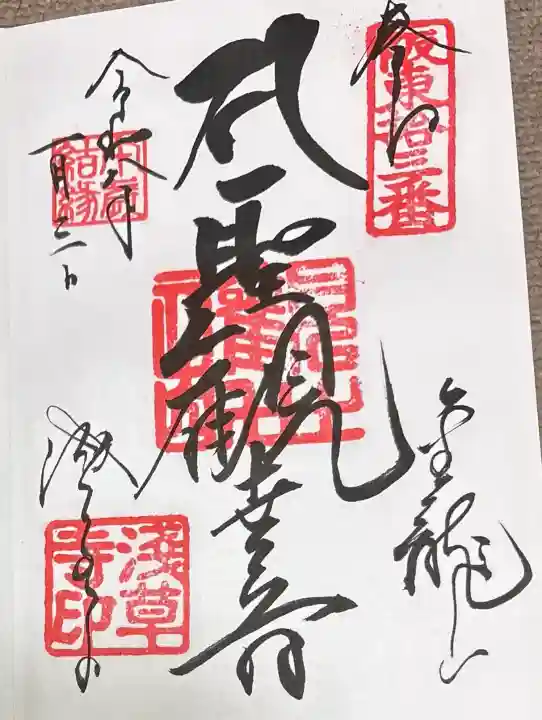 奉拝
坂東拾三番
金龍山
聖観世音
令和六年
一月三日
結縁
浅草寺
浅草寺印